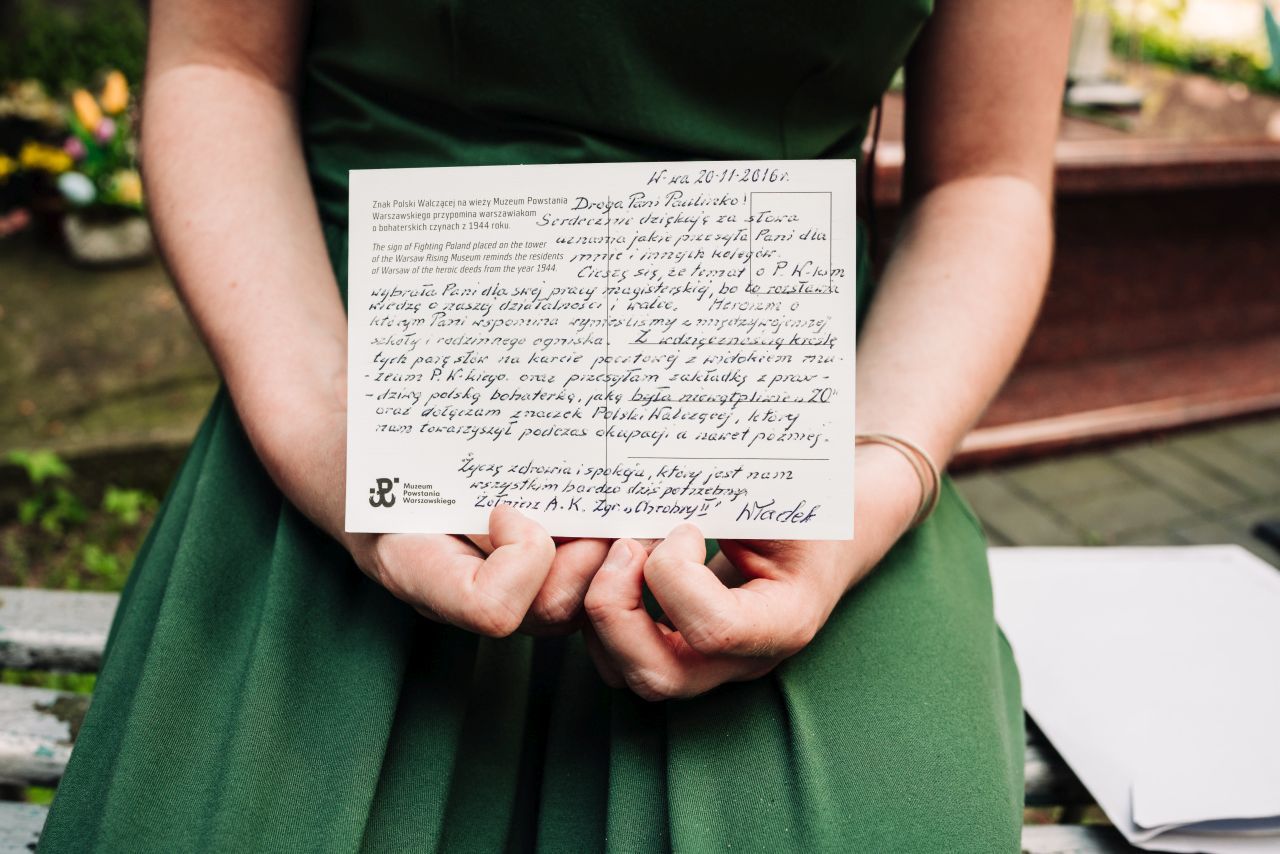 W-wa 20-11-2016r.
Znak Polski Walczącej na wieży Muzeum Powstania
Warszawskiego przypomina warszawiakom
o bohaterskich czynach z 1944 roku.
The sign of Fighting Poland placed on the tower
of the Warsaw Rising Museum reminds the residents
of Warsaw of the heroic deeds from the year 1944.
Droga Pani Paulinko!
Serdecznie dziękuję za słowa
uznania jakie przesyła Pani dla
mnie i innych kolegów.
Cieszę się, że temat o P. W-kim
wybrała Pani dla swej pracy magisterskiej, bo to rozsławia
wiedzę o naszej działalności i walce. Heroizm o
którym Pani wspomina wynieśliśmy z międzywojennej
szkoły i rodzinnego ogniska. Z wdzięcznością kreślę
tych parę słów na karcie pocztowej z widokiem mu-
-zeum P. W-kiego. oraz przesyłam zakładkę z praw-
-dziwą polską bohaterką, jaką była niewątpliwie "ZO"
oraz dołączam znaczek Polski Walczącej, który
nam towarzyszył podczas okupacji a nawet później.
Życzę zdrowia i spokoju, który jest nam
wszystkim bardzo dziś potrzebny.
Żołnierz A.K. Zgr. „Chrobry II"
Władek
Muzeum
Powstania
Warszawskiego